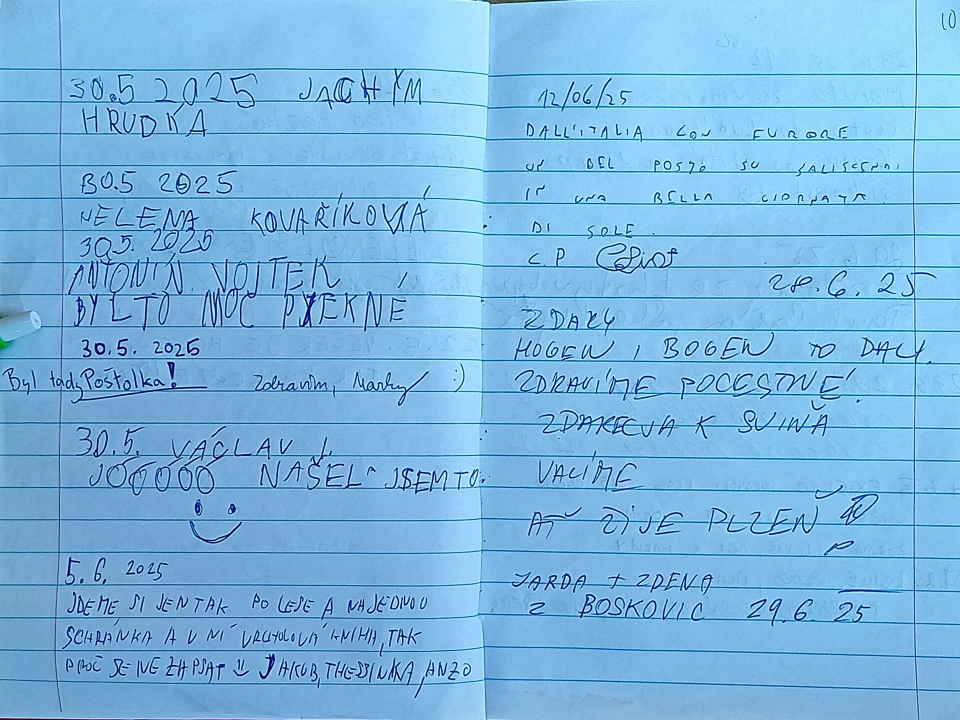 30.5 2025 JACHYM
HRUDKA
30.5 2025
HELENA KOVAŘÍKOVÁ
30.5. 2025
ANTONÍN VOJTEK
BYLTO MOC PXEKNÉ
30.5. 2025
Byl tady Poštolka! Zdravím, :)
30.5. VÁCLAV J.
JÓÓÓÓÓ NAŠEL JSEM TO.
5.6. 2025
JDEME SI JEN TAK PO LESE A NAJEDNOU
SCHRÁNKA A V NÍ VRCHOLOVÁ KNIHA, TAK
PROČ SE NEZAPSAT JAKUB, ANZO
10
12/06/25
DALL'ITALIA CON FURORE
UN BEL POSTO SU SALISCENDI
IN UNA BELLA GIORNATA
DI SOLE.
C.P
28.6.25
ZDAKY
HOGEN I BOGEN TO DALI.
ZDRAVÍME POCESTNÉ!
K SVINĂ
VALÍME
AŤ ŽIJE PLZEŇ
JARDA + ZDENA
Z BOSKOVIC 29.6.25